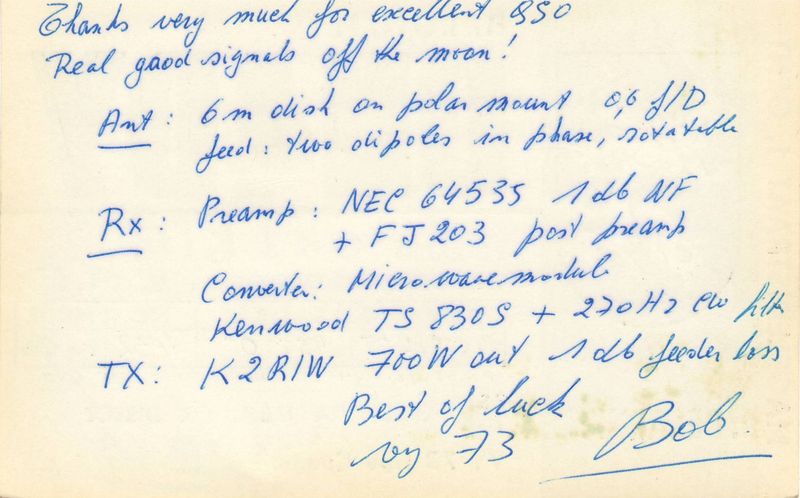 Thanks very much for excellent QSO
Real good signals off the moon!
Ant: 6m dish on polar mount 0,6 f/D
feed: two dipoles in phase, rotatable
Rx: Preamp: NEC 64535 1db NF
+ FJ203 post preamp
Converter: Microwavemodule
Kenwood TS 830S + 270Hz CW filter
TX: K2RIW 700W out 1db feeder loss
Best of luck
vy 73 Bob.